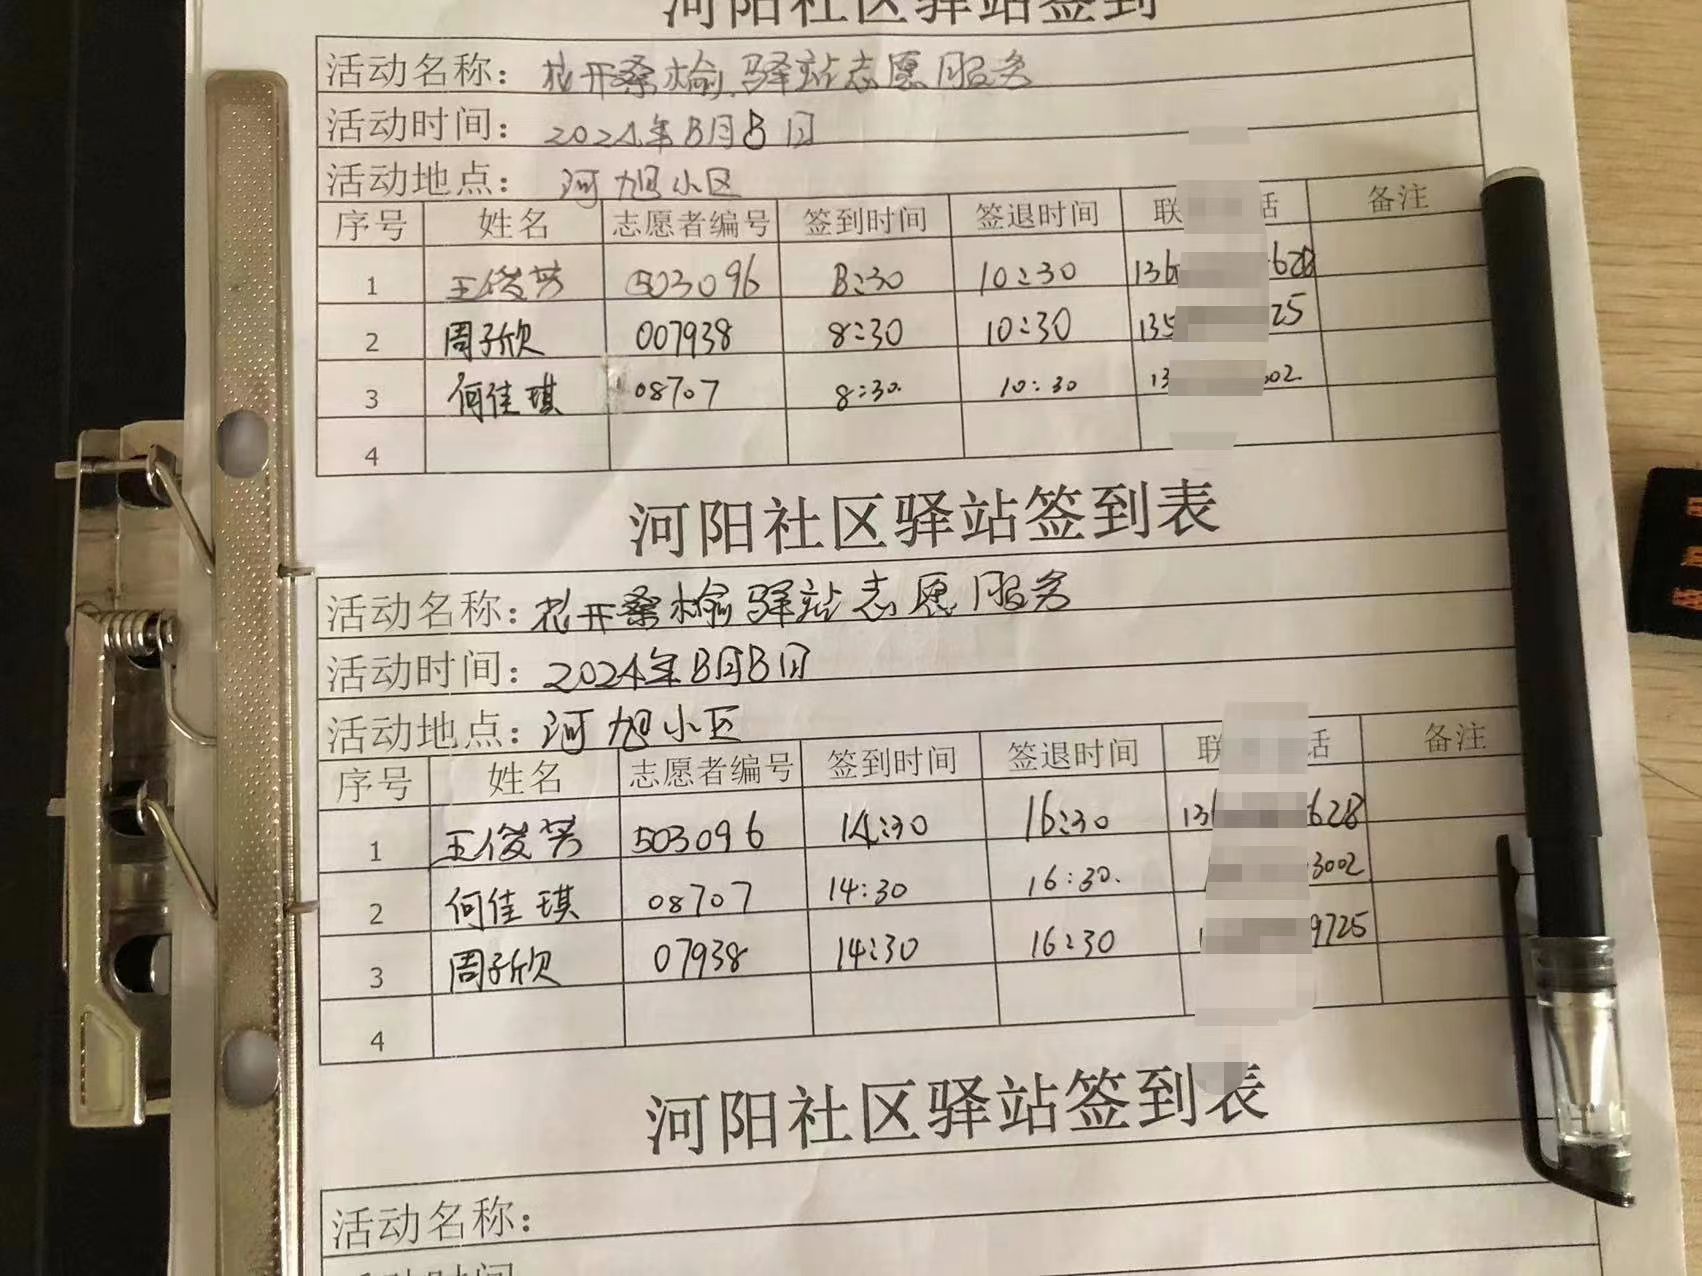 河阳社区驿站签到
活动名称：花开桑榆.驿站志愿服务
活动时间：2024年8月8日
活动地点：河旭小区
序号 姓名 志愿者编号 签到时间 签退时间 联 话 备注
1 王俊芳 503096 8:30 10:30 136 628
2 周子欣 007938 8:30 10:30 135 25
3 何佳琪 08707 8:30 10:30 13 002
4
河阳社区驿站签到表
活动名称：花开桑榆驿站志愿服务
活动时间：2024年8月8日
活动地点：河旭小区
序号 姓名 志愿者编号 签到时间 签退时间 联 话 备注
1 王俊芳 503096 14:30 16:30 136 628
2 何佳琪 08707 14:30 16:30. 3002
3 周子欣 07938 14:30 16:30 1 9725
4
河阳社区驿站签到表
活动名称：
活动时间